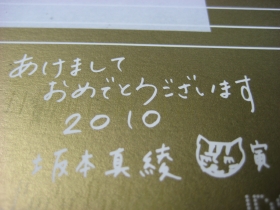 あけまして
おめでとうございます
2010
坂本真綾 寅